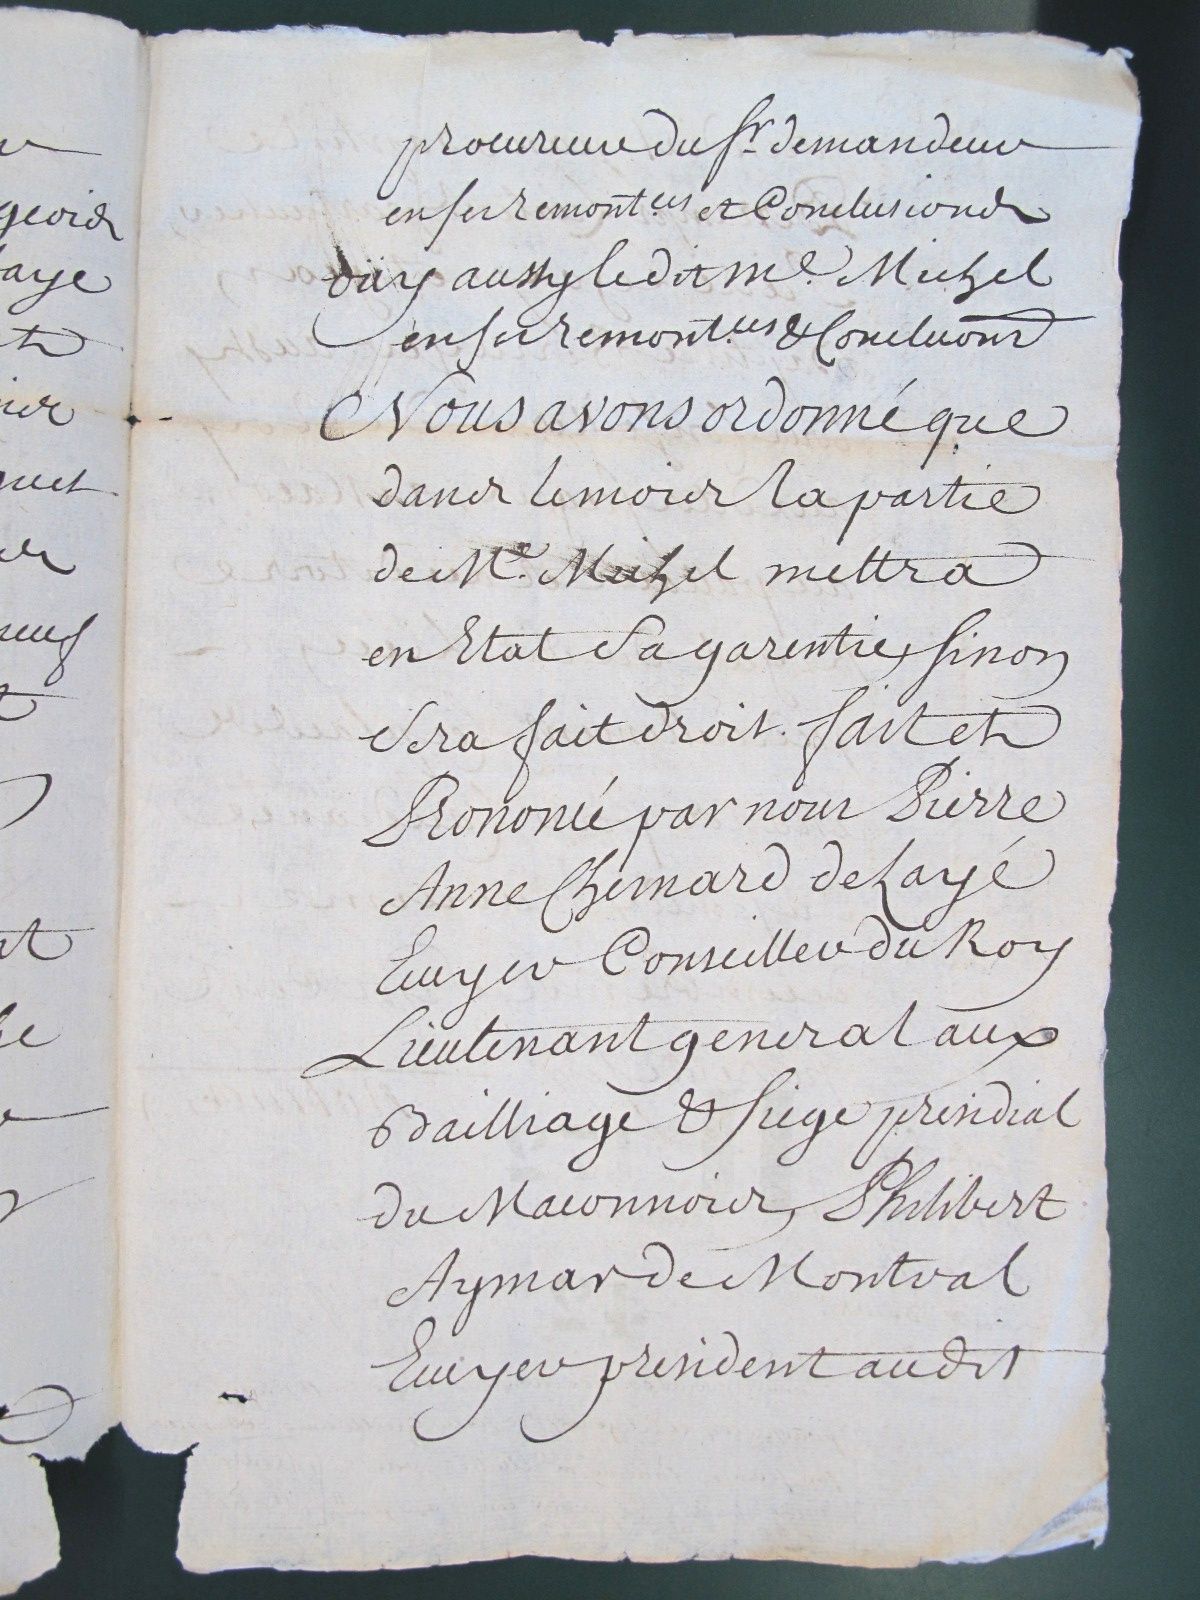 procureur du Sr. demandeur
en ses remont.ces et Conclusions
Oüy aussy ledit Me. Michel
en ses remont.ces & Concluons
Nous avons ordonné que
dans le mois la partie
de Me. Michel mettra
en Etat sa garentie, sinon
sera fait droit. fait et
Prononcé par nous Pierre
Anne Chesnard de Layé
Ecuyer Conseiller du Roy
Lieutenant general aux
Bailliage & siege presidial
du Maconnois, Philibert
Aymar de Montval
Ecuyer president audit